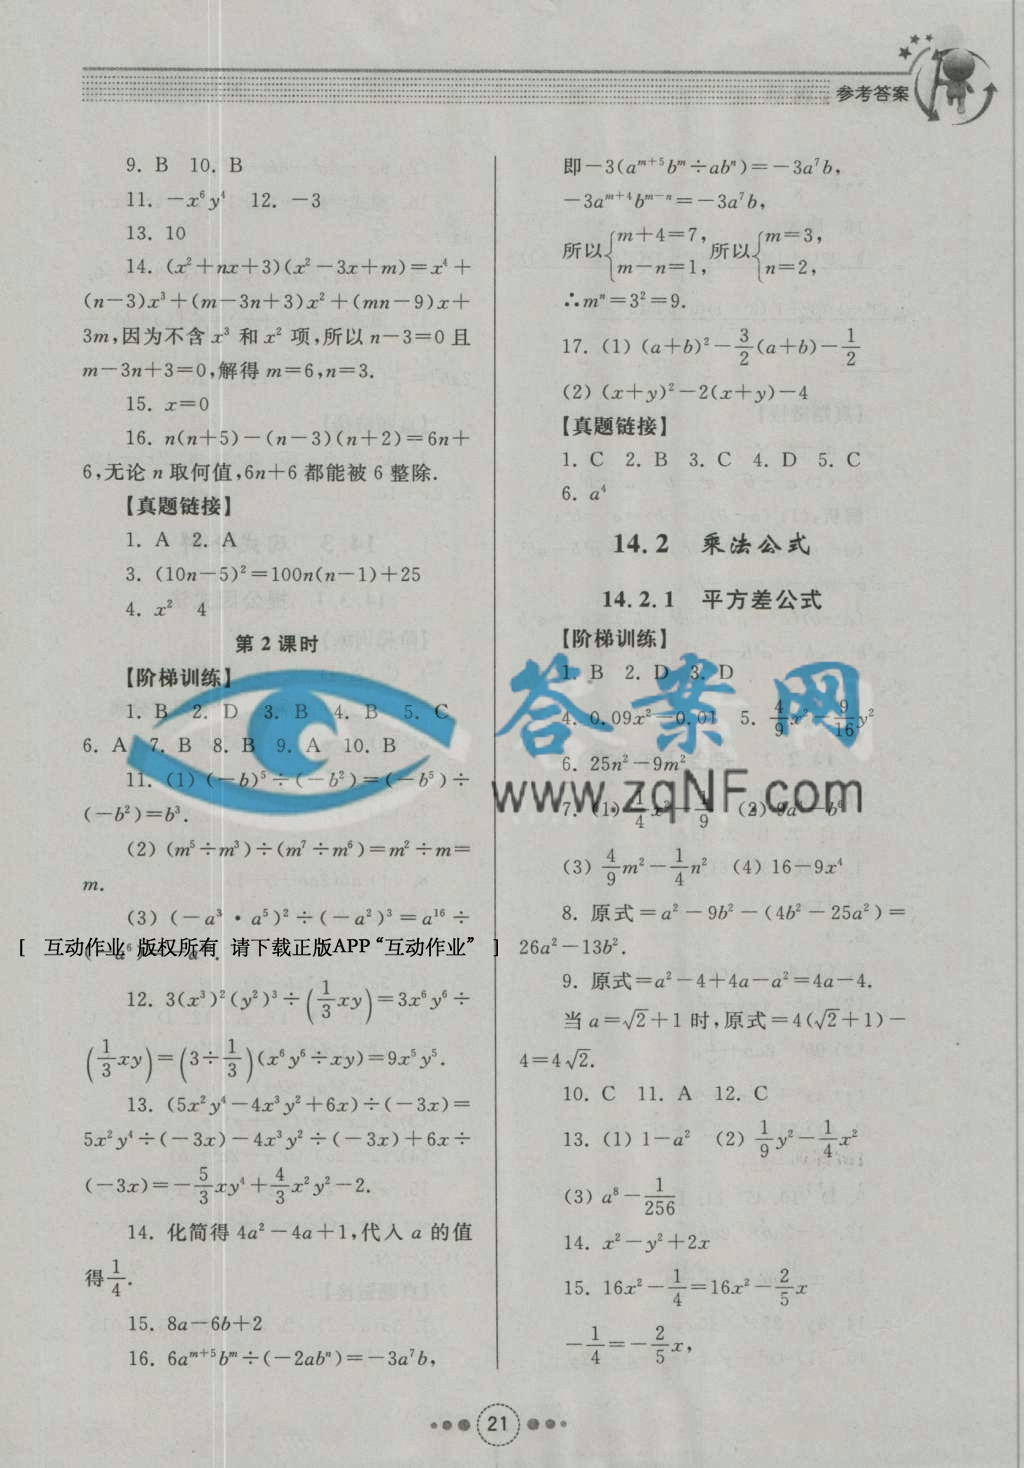 参考答案
9. B 10. B
11. －x⁶y⁴ 12. －3
13. 10
14. (x²＋nx＋3)(x²－3x＋m)＝x⁴＋
(n－3)x³＋(m－3n＋3)x²＋(mn－9)x＋
3m,因为不含 x³ 和 x² 项,所以 n－3＝0 且
m－3n＋3＝0,解得 m＝6,n＝3.
15. x＝0
16. n(n＋5)－(n－3)(n＋2)＝6n＋
6,无论 n 取何值,6n＋6 都能被 6 整除.
【真题链接】
1. A 2. A
3. (10n－5)²＝100n(n－1)＋25
4. x² 4
第 2 课时
【阶梯训练】
1. B 2. D 3. B 4. B 5. C
6. A 7. B 8. B 9. A 10. B
11. (1) (－b)⁵÷(－b²)＝(－b⁵)÷
(－b²)＝b³.
(2) (m⁵÷m³)÷(m⁷÷m⁶)＝m²÷m＝
m.
(3) (－a³·a⁵)²÷(－a²)³＝a¹⁶÷
[ 互动作业 版权所有 请下载正版APP“互动作业” ]
12. 3(x³)²(y²)³÷(1/3 xy)＝3x⁶y⁶÷
(1/3 xy)＝(3÷1/3)(x⁶y⁶÷xy)＝9x⁵y⁵.
13. (5x²y⁴－4x³y²＋6x)÷(－3x)＝
5x²y⁴÷(－3x)－4x³y²÷(－3x)＋6x÷
(－3x)＝－5/3 xy⁴＋4/3 x²y²－2.
14. 化简得 4a²－4a＋1,代入 a 的值
得 1/4.
15. 8a－6b＋2
16. 6aᵐ⁺⁵bᵐ÷(－2abⁿ)＝－3a⁷b,
即－3(aᵐ⁺⁵bᵐ÷abⁿ)＝－3a⁷b,
－3aᵐ⁺⁴bᵐ⁻ⁿ＝－3a⁷b,
所以{m＋4＝7, m－n＝1, 所以{m＝3, n＝2,
∴mⁿ＝3²＝9.
17. (1) (a＋b)²－3/2(a＋b)－1/2
(2) (x＋y)²－2(x＋y)－4
【真题链接】
1. C 2. B 3. C 4. D 5. C
6. a⁴
14.2 乘法公式
14.2.1 平方差公式
【阶梯训练】
1. B 2. D 3. D
4. 0.09x²－0.01 5. 4/9 x²－9/16 y²
6. 25n²－9m²
答案网
www.zqNF.com
7. (1) 1/4 x²－1/9 (2) 9a²－b⁶
(3) 4/9 m²－1/4 n² (4) 16－9x⁴
8. 原式＝a²－9b²－(4b²－25a²)＝
26a²－13b².
9. 原式＝a²－4＋4a－a²＝4a－4.
当 a＝√2＋1 时,原式＝4(√2＋1)－
4＝4√2.
10. C 11. A 12. C
13. (1) 1－a² (2) 1/9 y²－1/4 x²
(3) a⁸－1/256
14. x²－y²＋2x
15. 16x²－1/4＝16x²－2/5 x
－1/4＝－2/5 x,
21